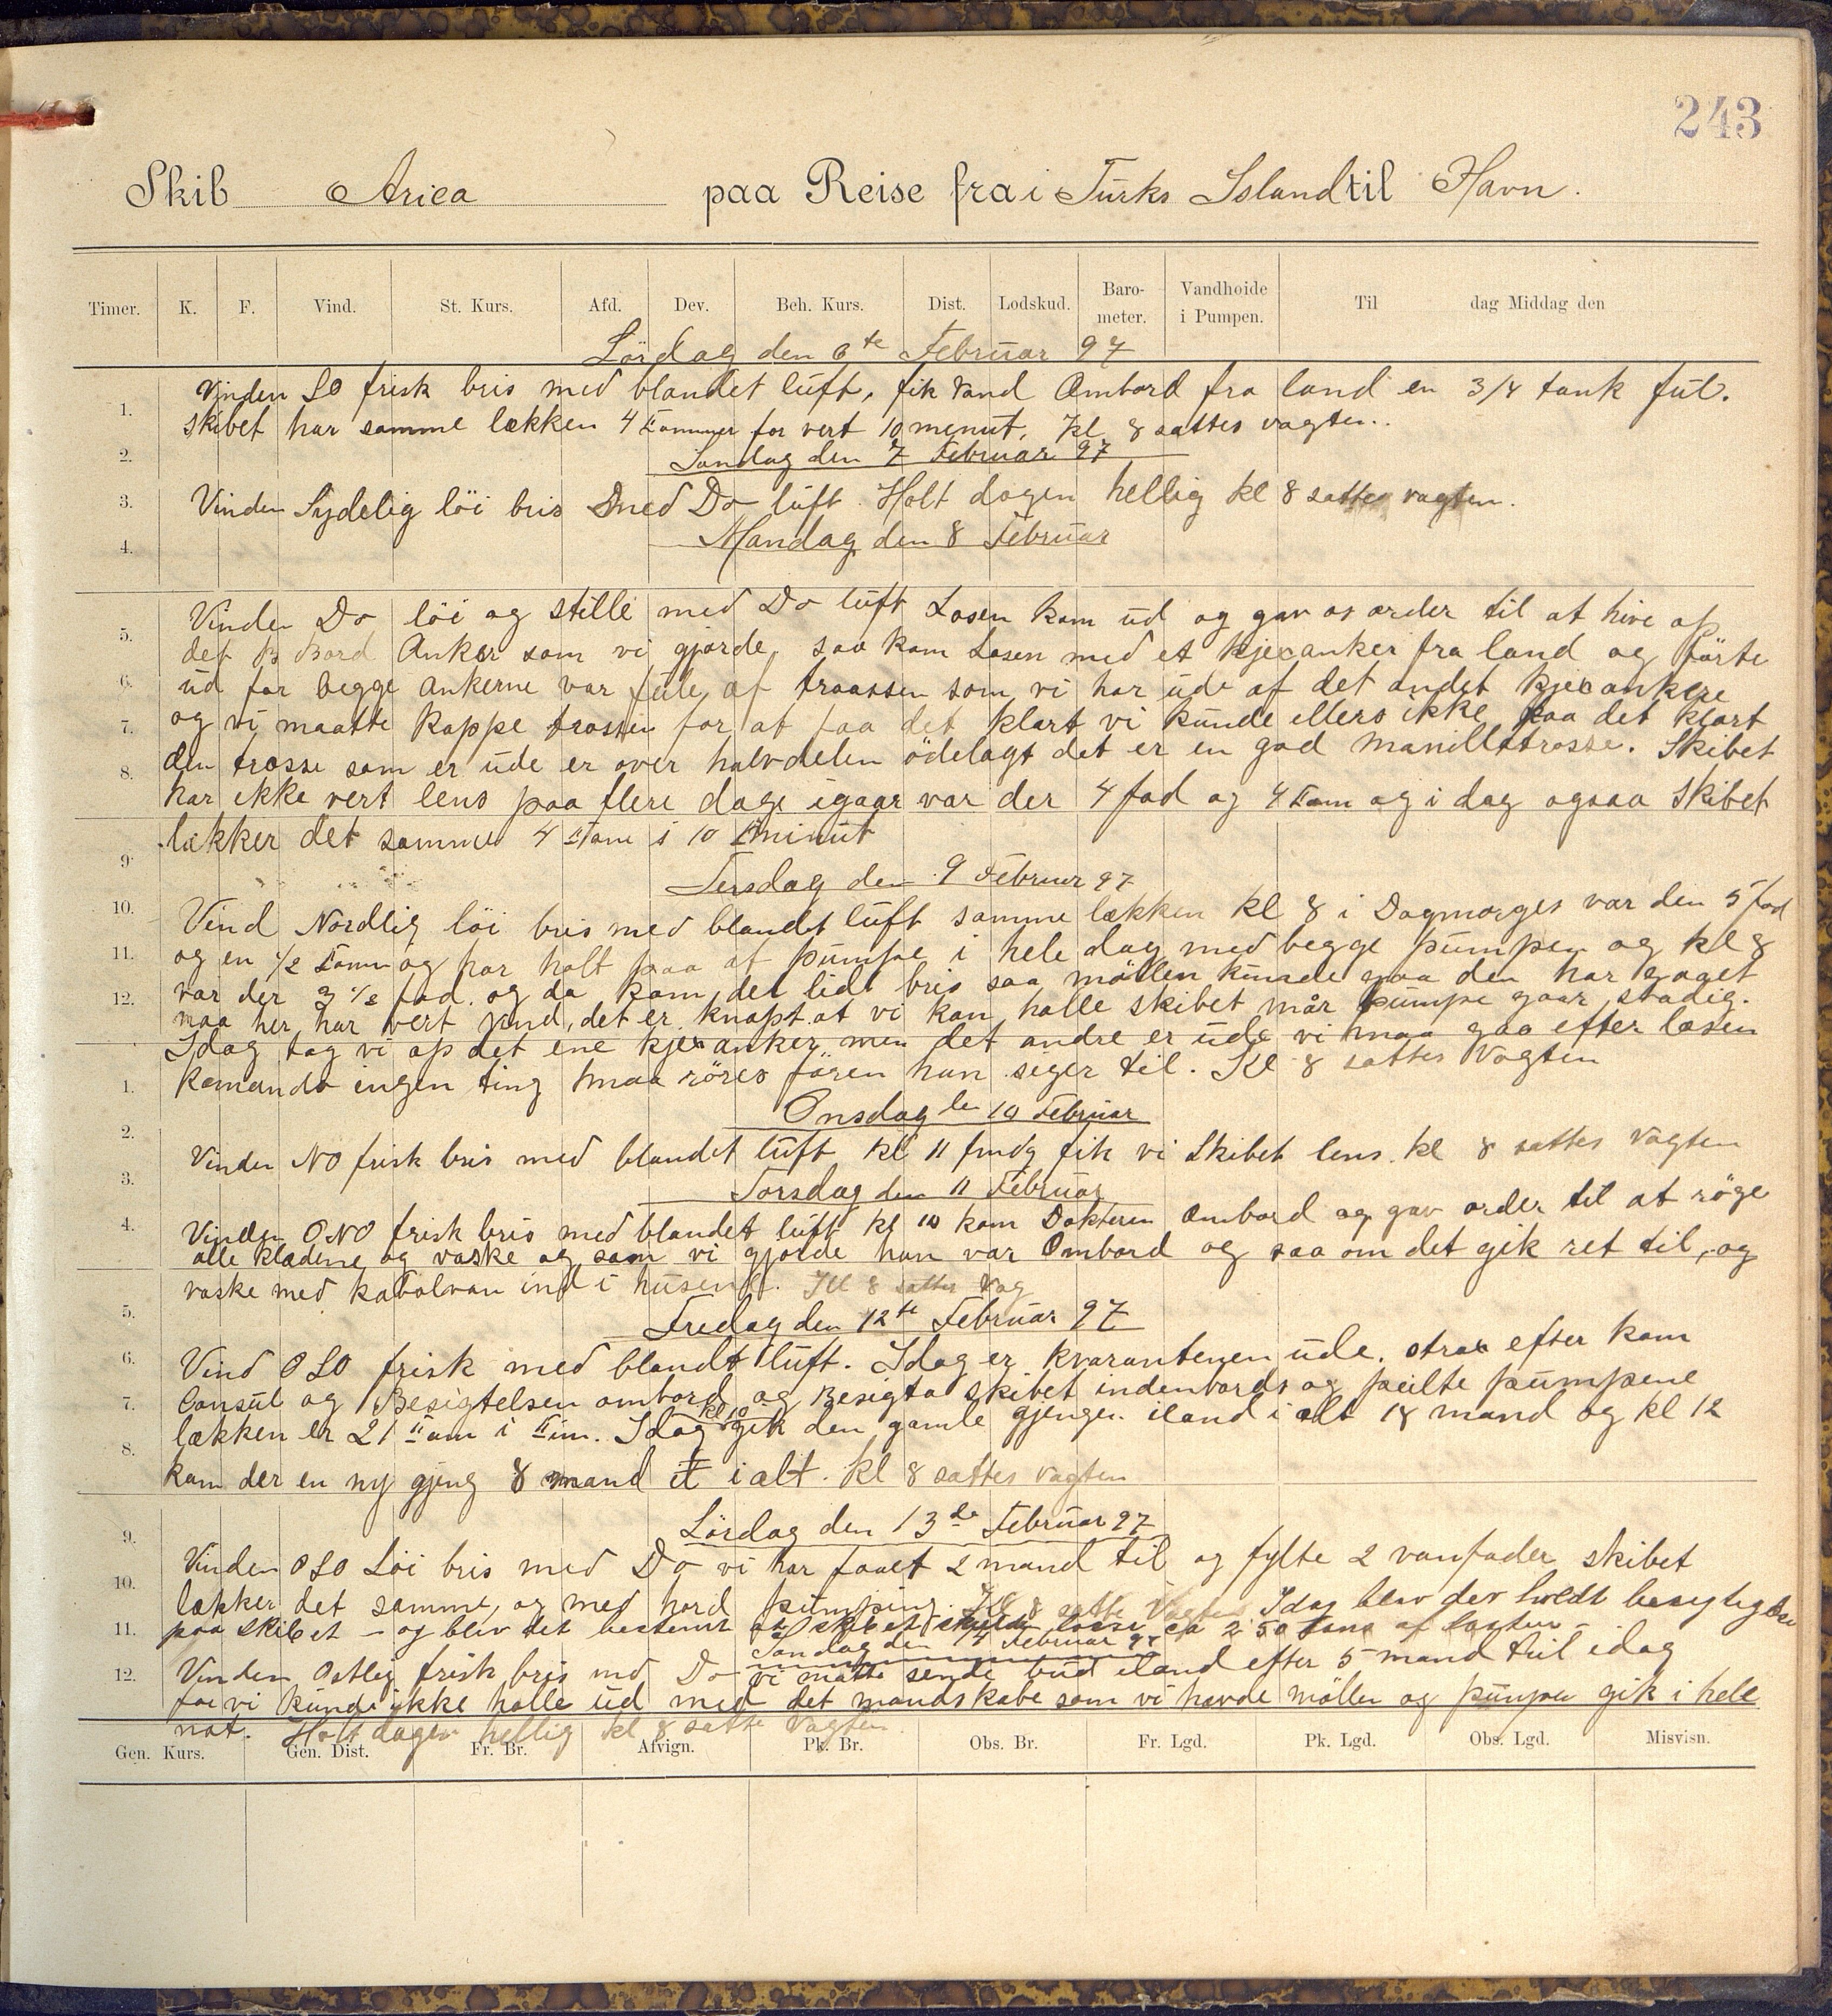 243
Skib Arica paa Reise fra i Turks Island til Havn.
Timer. K. F. Vind. St. Kurs. Afd. Dev. Beh. Kurs. Dist. Lodskud. Baro-meter. Vandhoide i Pumpen. Til dag Middag den
Lördag den 6te Februar 97
1. Vinden SO frisk bris med blandet luft, fik Vand Ombord fra land en 3/4 tank ful.
skibet har samme lækken 4 Tommer for vert 10 menut. Kl 8 sattes vagten.
2. Søndag den 7 Februar 97
3. Vinden Sydelig löi bris med Do luft. Holt dagen hellig kl 8 sattes vagten.
4. Mandag den 8 Februar
5. Vinden Do löi og stille med Do luft Losen kom ud og gav os order til at hive op
det B Bord Anker som vi gjorde, saa kom Losen med et kjeanker fra land og förte
6. ud for begge Ankerne var fule af traassen som vi har ude af det andet kjeankere
7. og vi maatte kappe trossen for at faa det klart vi kunde ellers ikke faa det klart
8. den trosse som er ude er over halvdelen ödelagt det er en god manillatrosse. Skibet
har ikke vert lens paa flere dage igaar var der 4 fod og 4 Tom og i dag ogsaa Skibet
lækker det samme 4 Tom i 10 minut
9. Tirsdag den 9 Februar 97
10. Vind Nordlig löi bris med blandet luft samme lækken kl 8 i Dagmorges var den 5 fod
11. og en 1/2 Tomm og har holt paa at pumpe i hele dag med begge pumper og kl 8
12. var der 3 1/2 fod. og da kom det lidt bris saa möllen kunde gaa den har gaaet
naa her har vert vind, det er knapt at vi kan halle skibet når pumpe gaar stadig.
Idag tog vi op det ene kjeanker men det andre er ude vi maa gaa efter losen
1. komando ingen ting maa röres fören han siger til. Kl 8 sattes Vagten
Onsdag de 10 Februar
2. Vinden NO frisk bris med blandet luft kl 11 fmdg fik vi Skibet lens. kl 8 sattes Vagten
3. Torsdag den 11 Februar
4. Vinden ONO frisk bris med blandet luft kl 10 kom Dokteren ombord og gav order til at röge
alle klædene og vaske og som vi gjorde han var Ombord og saa om det gik ret til, og
vaske med kabolvan ind i husene. Kl 8 sattes Vag
5. Fredag den 12te Februar 97
6. Vind OSO frisk med blandt luft. Idag er kvarantenen ude. strax efter kom
7. Consul og Besigtelsen ombord og Besigta skibet indenbords og peilte pumpene
lækken er 21 Tom i Tim. Idag kl 10 gik den gamle gjengen iland i alt 18 mand og kl 12
8. kom der en ny gjeng 8 mand i alt. kl 8 sattes Vagten
Lördag den 13de Februar 97
9. Vinden OSO Löi bris med Do vi har faaet 2 mand til og fylte 2 vanfader skibet
10. lækker det samme, og med hord pumping. Kl 8 satte Vagten Idag blev der holdt besigtigelse
11. paa skibet - og blev det bestemt at skibet skulde losse ca 250 tons af lasten -
Søndag den 14 Februar 97
12. Vinden Ostlig frisk bris med Do vi matte sende bud iland efter 5 mand till idag
for vi kunde ikke halle ud med det mandskabe som vi havde möllen og pumpen gik i hele
nat. Holt dagen hellig kl 8 satte Vagten
Gen. Kurs. Gen. Dist. Fr. Br. Afvign. Pk. Br. Obs. Br. Fr. Lgd. Pk. Lgd. Obs. Lgd. Misvisn.